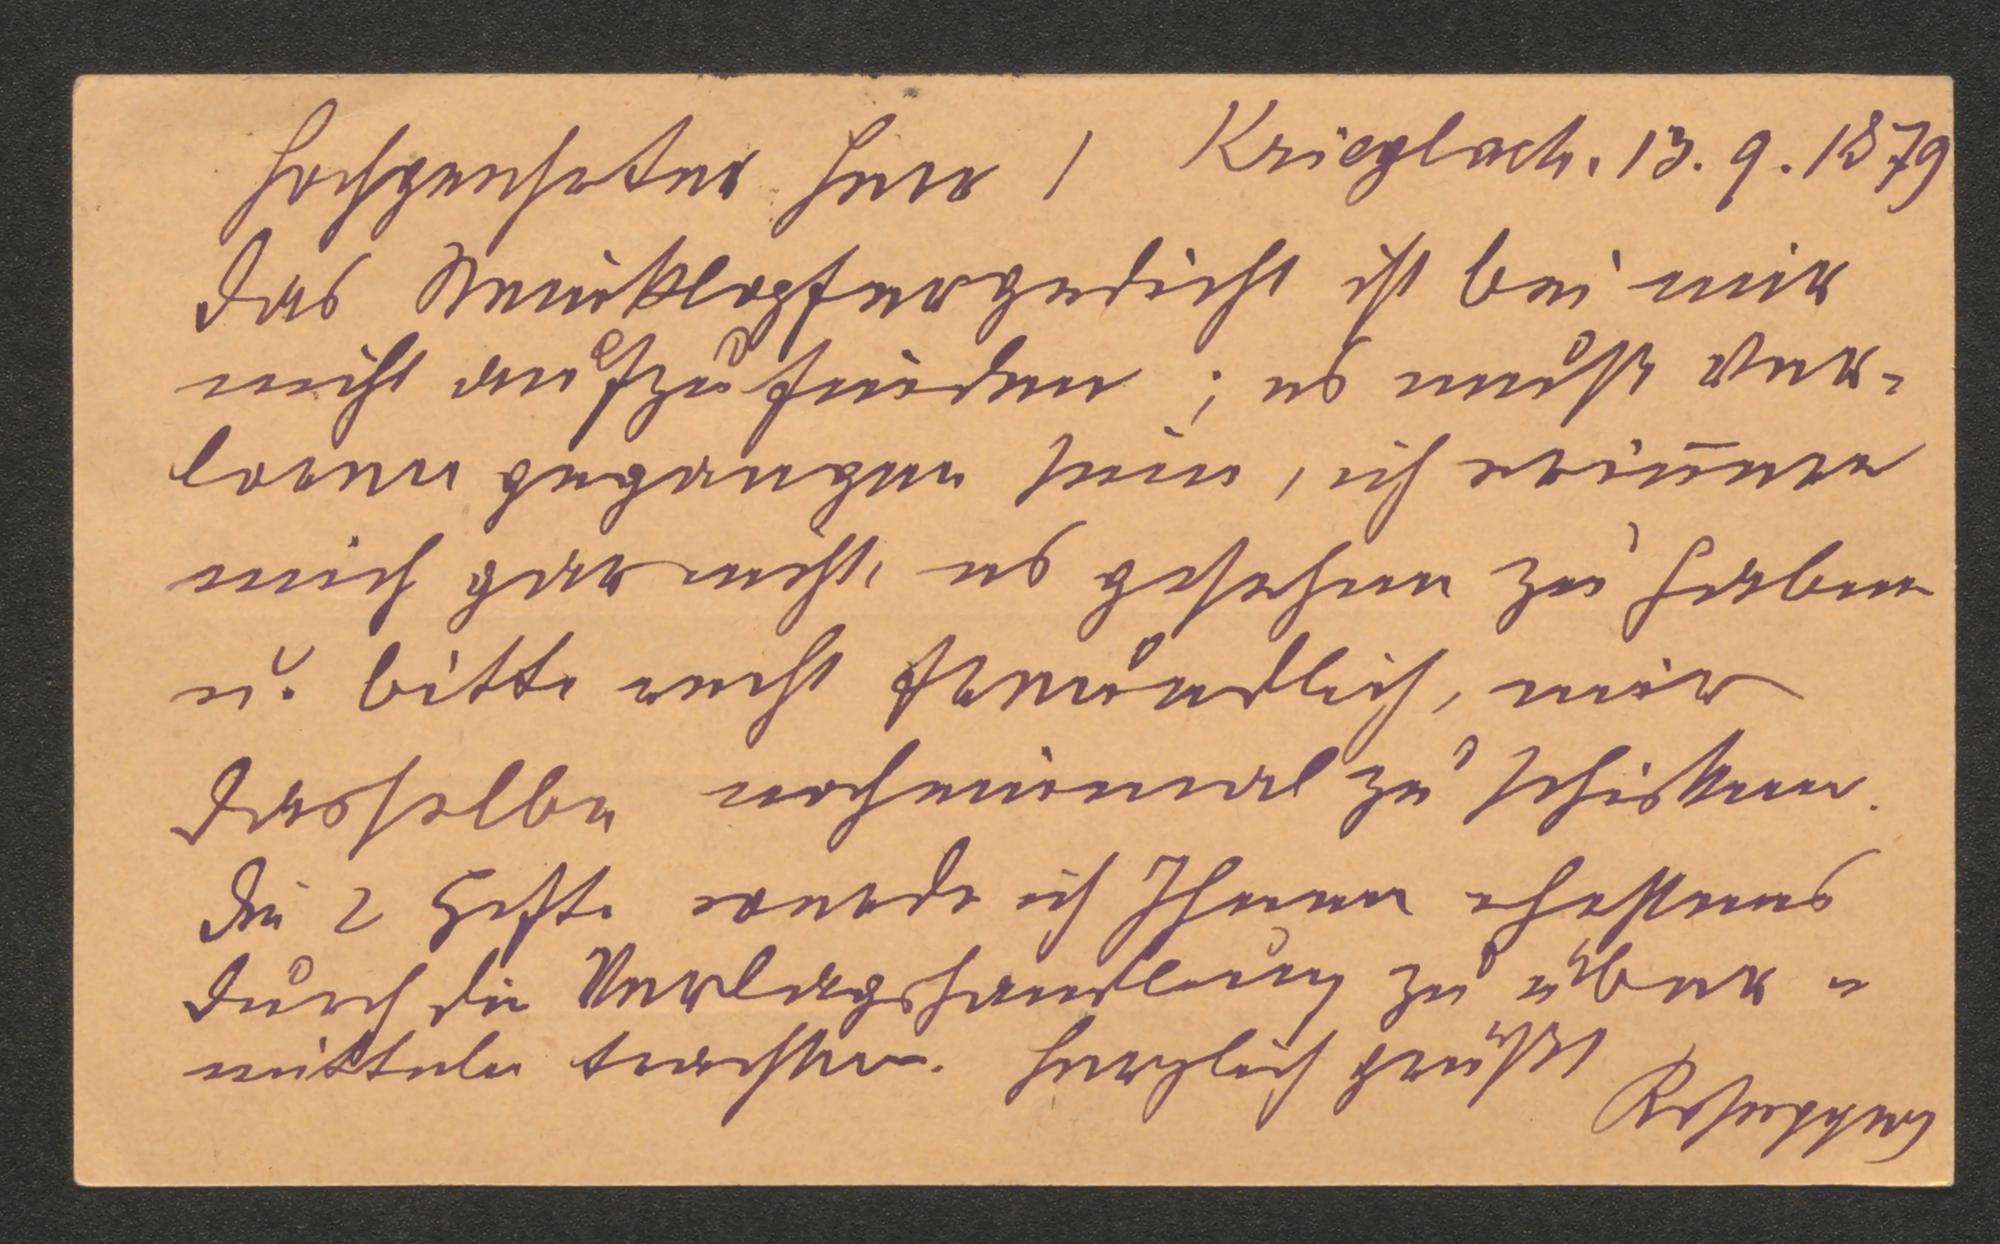 Hochgeehrter Herr! Krieglach. 13. 9. 1879
Das Steinklopfergedicht ist bei mir
nicht aufzufinden; es muß ver-
loren gegangen sein, ich erin̄ere
mich gar nicht, es gesehen zu haben
u. bitte recht freundlich, mir
dasselbe nocheinmal zu schicken.
Die 2 Hefte werde ich Ihnen ehestens
durch die Verlagshandlung zu über-
mitteln trachten. Herzlich grüßt
Rosegger